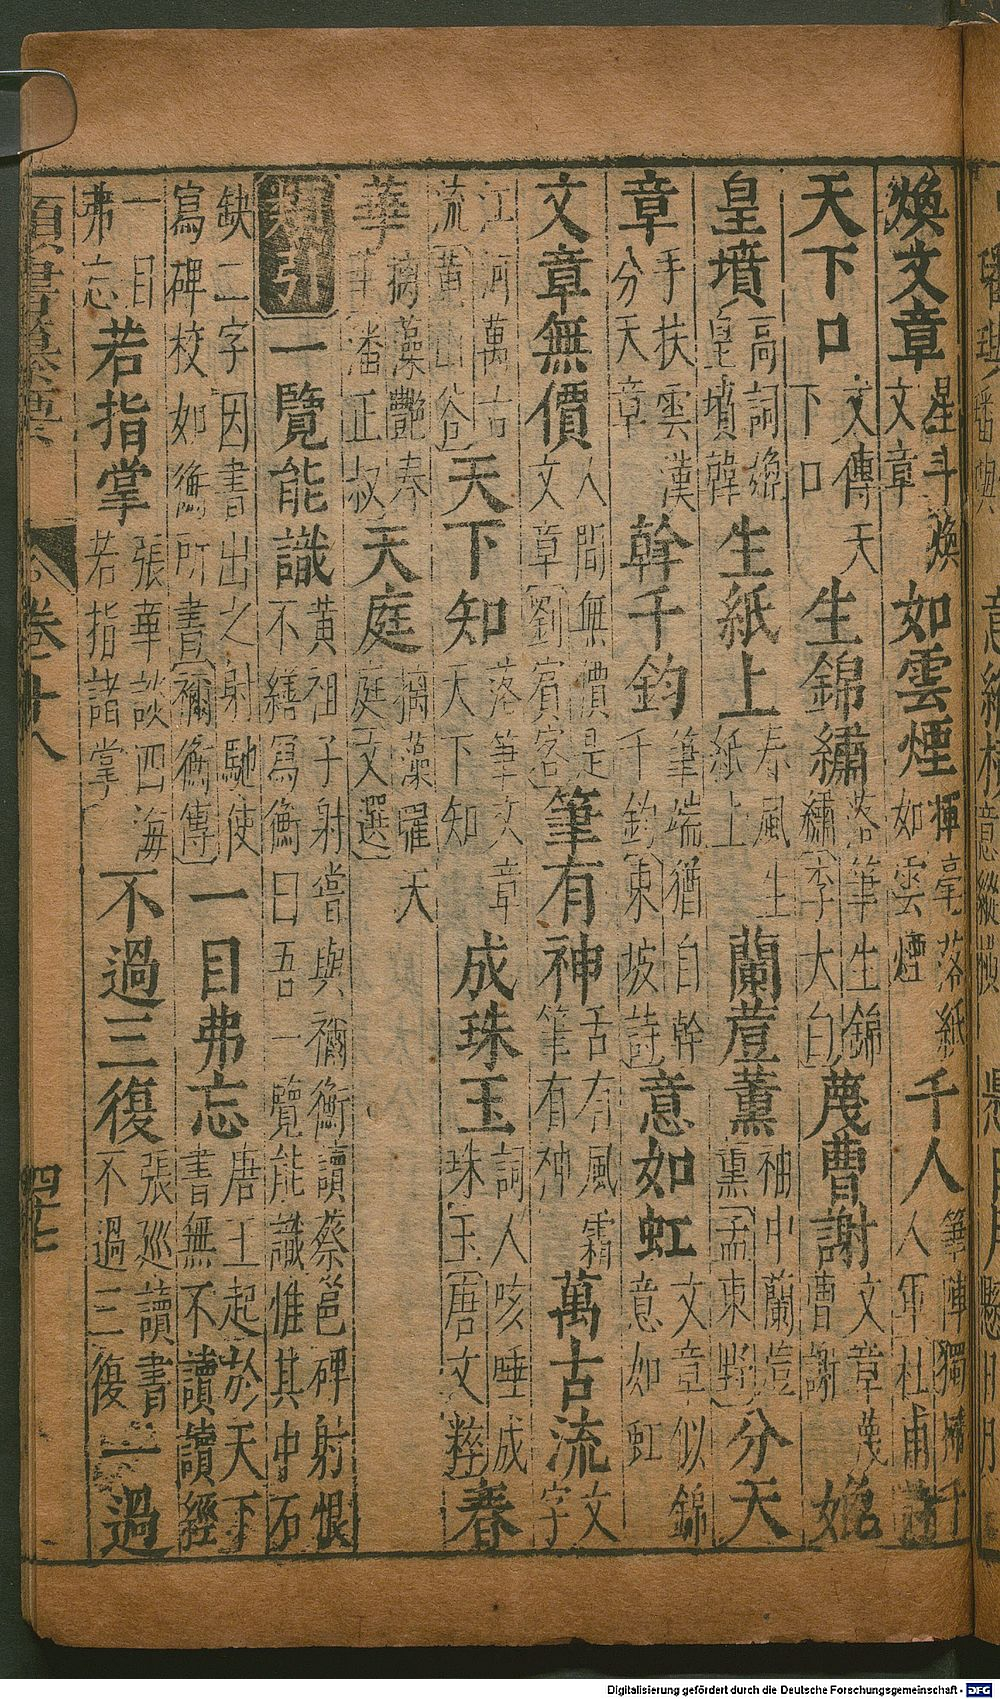 煥文章 星斗煥文章 如雲煙 揮毫落紙如雲煙 千人 筆陣獨掃千人軍杜甫詩
天下口 文傳天下口 生錦繡 落筆生錦繡〔李太白〕 蔑曹謝 文章蔑曹謝 媲
皇墳 高詞媲皇墳韓 生紙上 春風生紙上 蘭荳薰 袖中蘭荳薰〔孟東野〕 分天
章 手扶雲漢分天章 幹千鈞 筆端猶自幹千鈞〔東坡詩〕 意如虹 文章似錦意如虹
文章無價 人間無價是文章〔劉賓客〕 筆有神 舌有風霜筆有神 萬古流 文字
江河萬古流〔黃山谷〕 天下知 落筆文章天下知 成珠玉 詞人咳唾成珠玉〔唐文粹〕 春
華 摛藻艷春華〔潘正叔〕 天庭 摛藻羅天庭〔文選〕
類引 一覽能識 黃祖子射嘗與禰衡讀蔡邕碑射恨不繕寫衡曰吾一覽能識惟其中石
缺二字因書出之射馳使寫碑校如衡所書〔禰衡傳〕 一目弗忘 唐王起於天下書無不讀讀經
一目弗忘 若指掌 張華談四海若指諸掌 不過三復 張巡讀書不過三復 一過
類書纂要 卷廿八 四十七
Digitalisierung gefördert durch die Deutsche Forschungsgemeinschaft - DFG